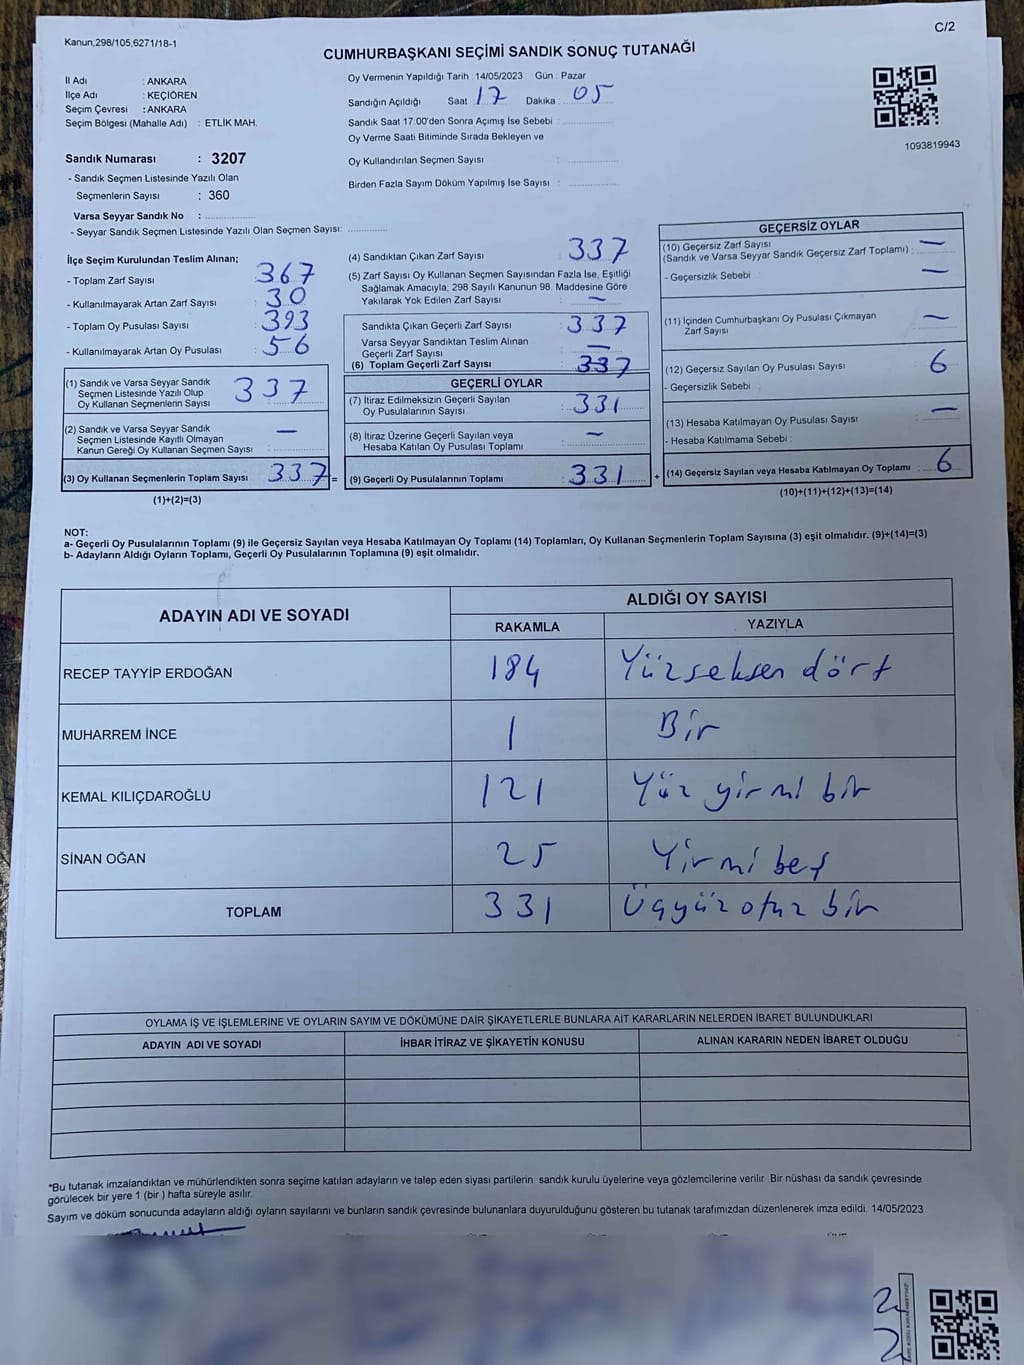 C/2
Kanun;298/105,6271/18-1
CUMHURBAŞKANI SEÇİMİ SANDIK SONUÇ TUTANAĞI
İl Adı : ANKARA
İlçe Adı : KEÇİÖREN
Seçim Çevresi : ANKARA
Seçim Bölgesi (Mahalle Adı) : ETLİK MAH.
Oy Vermenin Yapıldığı Tarih : 14/05/2023 Gün : Pazar
Sandığın Açıldığı Saat 17 Dakika 05
Sandık Saat 17:00'den Sonra Açımış İse Sebebi :
Oy Verme Saati Bitiminde Sırada Bekleyen ve
Oy Kullandırılan Seçmen Sayısı :
Birden Fazla Sayım Döküm Yapılmış İse Sayısı :
1093819943
Sandık Numarası : 3207
- Sandık Seçmen Listesinde Yazılı Olan
Seçmenlerin Sayısı : 360
Varsa Seyyar Sandık No :
- Seyyar Sandık Seçmen Listesinde Yazılı Olan Seçmen Sayısı:
İlçe Seçim Kurulundan Teslim Alınan;
- Toplam Zarf Sayısı : 367
- Kullanılmayarak Artan Zarf Sayısı : 30
- Toplam Oy Pusulası Sayısı : 393
- Kullanılmayarak Artan Oy Pusulası : 56
(1) Sandık ve Varsa Seyyar Sandık
Seçmen Listesinde Yazılı Olup
Oy Kullanan Seçmenlerin Sayısı : 337
(2) Sandık ve Varsa Seyyar Sandık
Seçmen Listesinde Kayıtlı Olmayan
Kanun Gereği Oy Kullanan Seçmen Sayısı : —
(3) Oy Kullanan Seçmenlerin Toplam Sayısı : 337 =
(1)+(2)=(3)
(4) Sandıktan Çıkan Zarf Sayısı : 337
(5) Zarf Sayısı Oy Kullanan Seçmen Sayısından Fazla İse, Eşitliği
Sağlamak Amacıyla; 298 Sayılı Kanunun 98. Maddesine Göre
Yakılarak Yok Edilen Zarf Sayısı : —
Sandıkta Çıkan Geçerli Zarf Sayısı : 337
Varsa Seyyar Sandıktan Teslim Alınan
Geçerli Zarf Sayısı : —
(6) Toplam Geçerli Zarf Sayısı : 337
GEÇERLİ OYLAR
(7) İtiraz Edilmeksizin Geçerli Sayılan
Oy Pusulalarının Sayısı : 331
(8) İtiraz Üzerine Geçerli Sayılan veya
Hesaba Katılan Oy Pusulası Toplamı : —
(9) Geçerli Oy Pusulalarının Toplamı : 331 +
GEÇERSİZ OYLAR
(10) Geçersiz Zarf Sayısı
(Sandık ve Varsa Seyyar Sandık Geçersiz Zarf Toplamı) : —
- Geçersizlik Sebebi : —
(11) İçinden Cumhurbaşkanı Oy Pusulası Çıkmayan
Zarf Sayısı : —
(12) Geçersiz Sayılan Oy Pusulası Sayısı : 6
- Geçersizlik Sebebi :
(13) Hesaba Katılmayan Oy Pusulası Sayısı : —
- Hesaba Katılmama Sebebi :
(14) Geçersiz Sayılan veya Hesaba Katılmayan Oy Toplamı : 6
(10)+(11)+(12)+(13)=(14)
NOT:
a- Geçerli Oy Pusulalarının Toplamı (9) ile Geçersiz Sayılan veya Hesaba Katılmayan Oy Toplamı (14) Toplamları, Oy Kullanan Seçmenlerin Toplam Sayısına (3) eşit olmalıdır. (9)+(14)=(3)
b- Adayların Aldığı Oyların Toplamı, Geçerli Oy Pusulalarının Toplamına (9) eşit olmalıdır.
ADAYIN ADI VE SOYADI
ALDIĞI OY SAYISI
RAKAMLA YAZIYLA
RECEP TAYYİP ERDOĞAN 184 Yüzseksen dört
MUHARREM İNCE 1 Bir
KEMAL KILIÇDAROĞLU 121 Yüz yirmi bir
SİNAN OĞAN 25 Yirmi beş
TOPLAM 331 Üçyüz otuz bir
OYLAMA İŞ VE İŞLEMLERİNE VE OYLARIN SAYIM VE DÖKÜMÜNE DAİR ŞİKAYETLERLE BUNLARA AİT KARARLARIN NELERDEN İBARET BULUNDUKLARI
ADAYIN ADI VE SOYADI İHBAR İTİRAZ VE ŞİKAYETİN KONUSU ALINAN KARARIN NEDEN İBARET OLDUĞU
*Bu tutanak imzalandıktan ve mühürlendikten sonra seçime katılan adayların ve talep eden siyasi partilerin sandık kurulu üyelerine veya gözlemcilerine verilir. Bir nüshası da sandık çevresinde
görülecek bir yere 1 (bir ) hafta süreyle asılır.
Sayım ve döküm sonucunda adayların aldığı oyların sayılarını ve bunların sandık çevresinde bulunanlara duyurulduğunu gösteren bu tutanak tarafımızdan düzenlenerek imza edildi. 14/05/2023